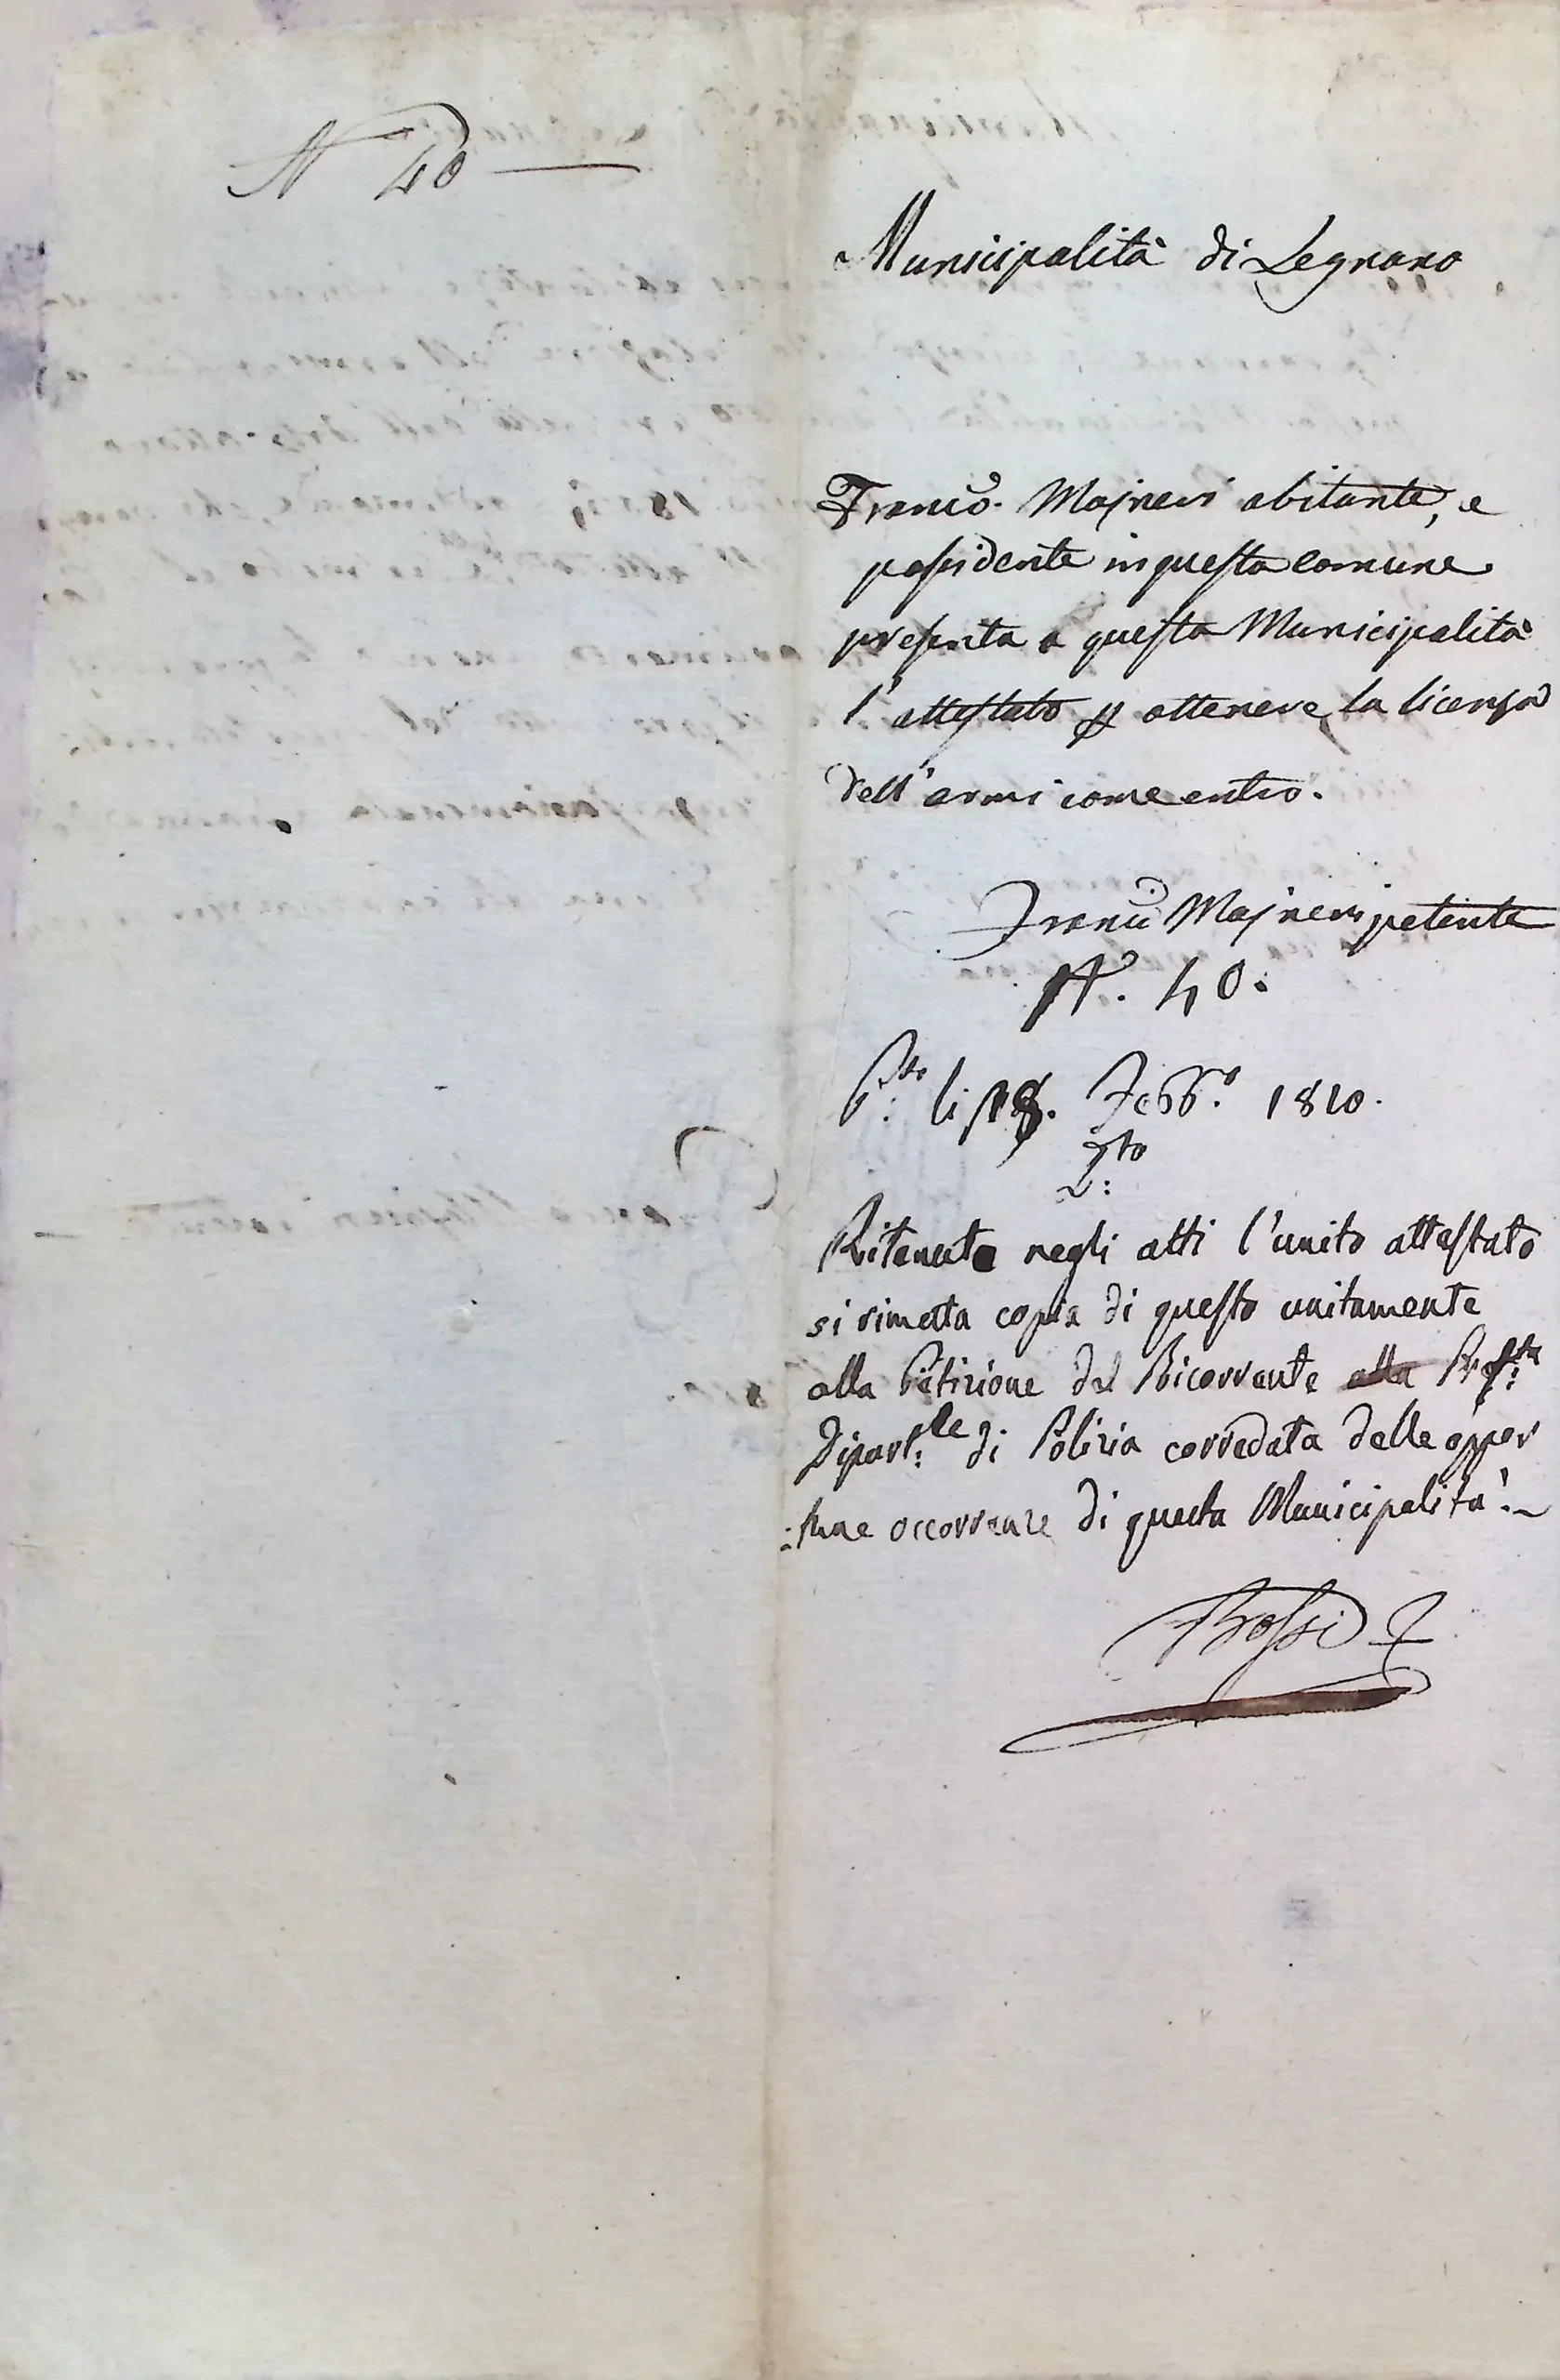 N 40
Municipalità di Legnano
Franc.o Majneri abitante, e
possidente in questa comune
presenta a questa Municipalità
l'attestato p ottenere la licenza
dell'armi come entro.
Majneri petente
N. 40.
P.to li 18. Febb.o 1810.
Ritenuto negli atti l'unito attestato
si rimetta copia di questo unitamente
alla Petizione del Ricorrente alla Pref.ra
Dipart.le di Polizia corredata delle oppor
:tune occorrenze di questa Municipalità.
Rossi